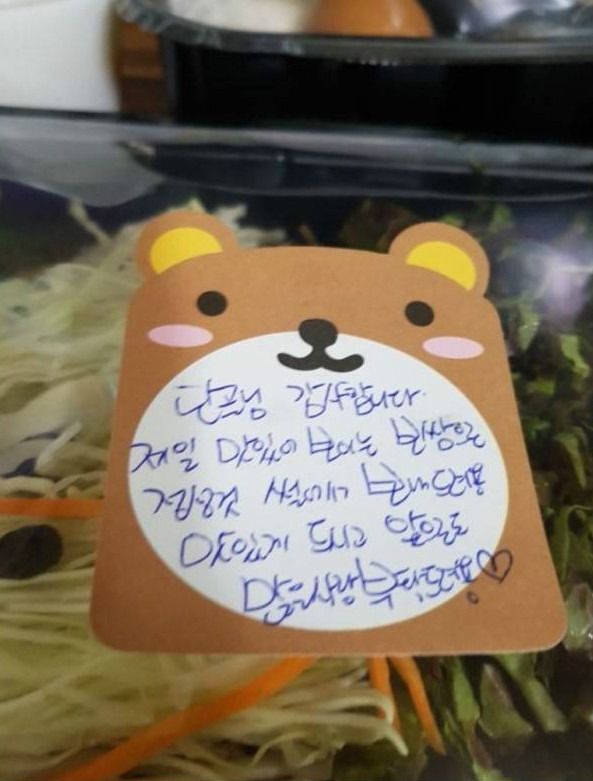 단골님 감사합니다.
제일 맛있어 보이는 반쌍으로
정성껏 썰어서 보내드려용
맛있게 드시고 앞으로도
많은사랑 부탁드려요!♡